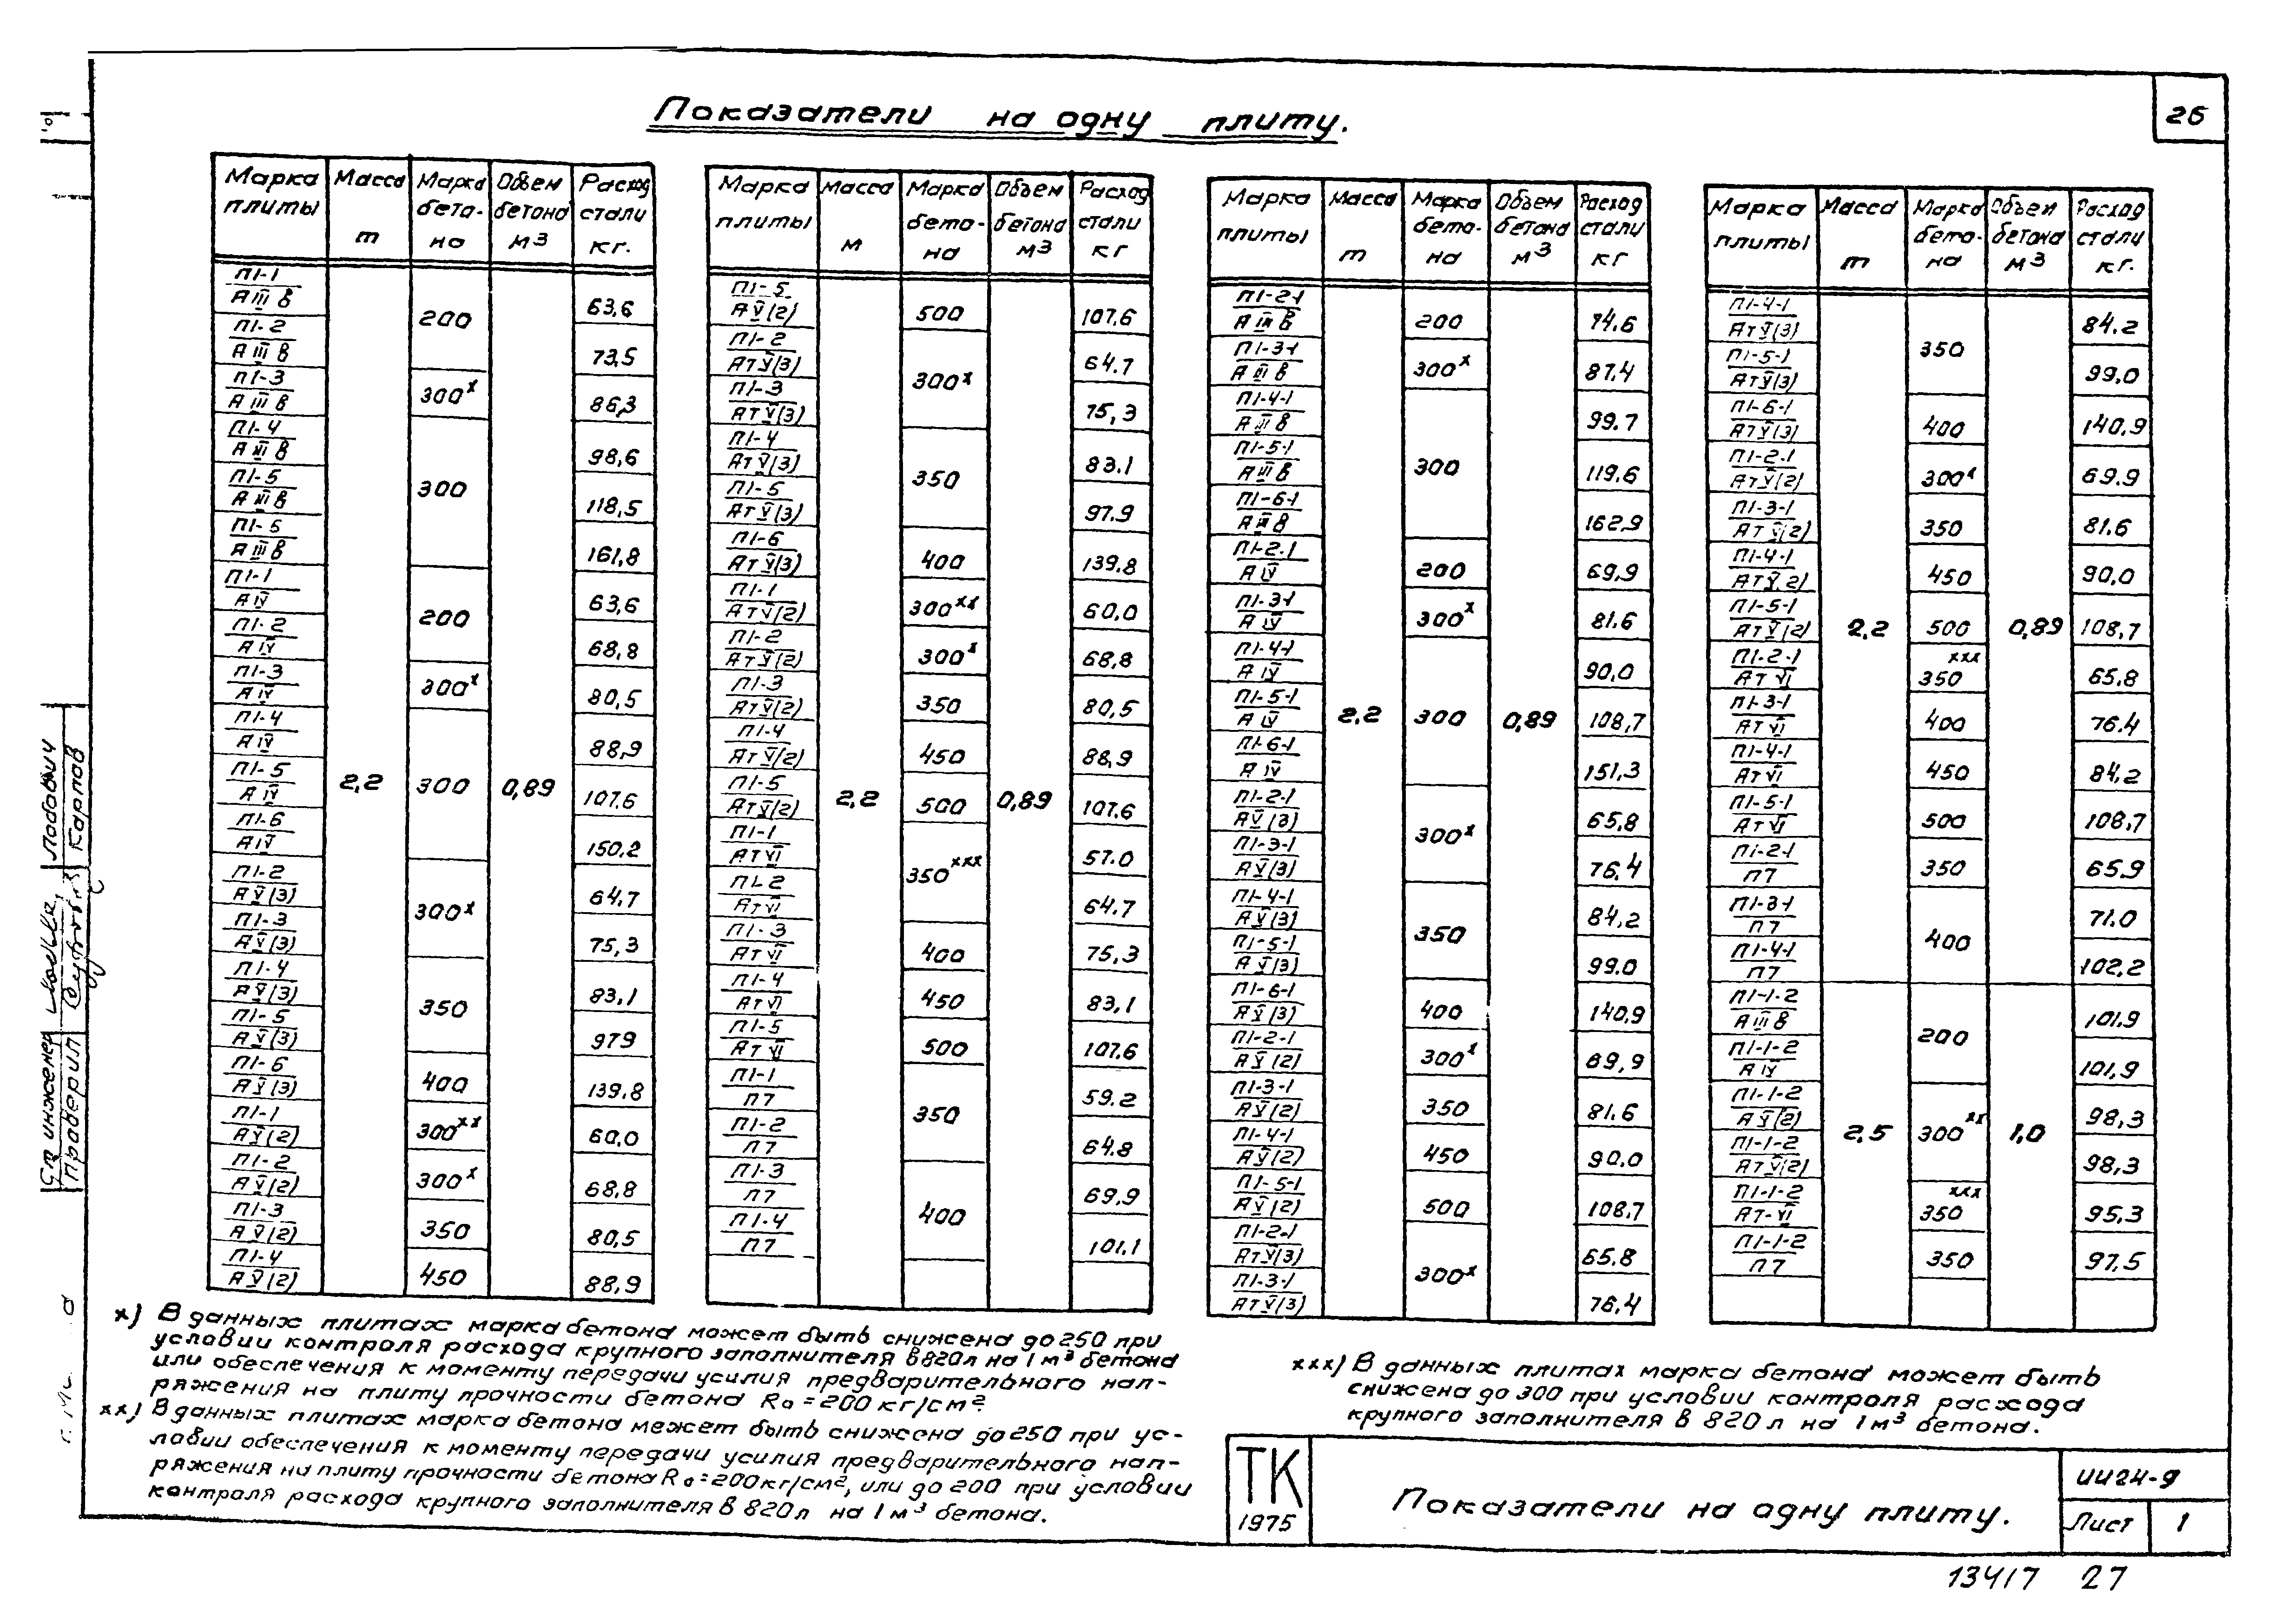 Показатели на одну плиту.
26
Марка плиты | Масса т | Марка бето-на | Объем бетона м3 | Расход стали кг.
П1-1 АIIIв | 2,2 | 200 | 0,89 | 63,6
П1-2 АIIIв | 73,5
П1-3 АIIIв | 300х | 86,3
П1-4 АIIIв | 300 | 98,6
П1-5 АIIIв | 118,5
П1-6 АIIIв | 161,8
П1-1 АIV | 200 | 63,6
П1-2 АIV | 68,8
П1-3 АIV | 300х | 80,5
П1-4 АIV | 300 | 88,9
П1-5 АIV | 107.6
П1-6 АIV | 150,2
П1-2 АV(3) | 300х | 64,7
П1-3 АV(3) | 75,3
П1-4 АV(3) | 350 | 83,1
П1-5 АV(3) | 979
П1-6 АV(3) | 400 | 139.8
П1-1 АV(2) | 300хх | 60,0
П1-2 АV(2) | 300х | 68,8
П1-3 АV(2) | 350 | 80,5
П1-4 АV(2) | 450 | 88,9
Марка плиты | Масса м | Марка бето-на | Объем бетона м3 | Расход стали кг
П1-5 АV(2) | 2,2 | 500 | 0,89 | 107.6
П1-2 АтV(3) | 300х | 64.7
П1-3 АтV(3) | 75,3
П1-4 АтV(3) | 350 | 83.1
П1-5 АтV(3) | 97.9
П1-6 АтV(3) | 400 | 139.8
П1-1 АтV(2) | 300хх | 60,0
П1-2 АтV(2) | 300х | 68,8
П1-3 АтV(2) | 350 | 80,5
П1-4 АтV(2) | 450 | 88,9
П1-5 АтV(2) | 500 | 107.6
П1-1 АтVI | 350ххх | 57.0
П1-2 АтVI | 64.7
П1-3 АтVI | 400 | 75,3
П1-4 АтVI | 450 | 83,1
П1-5 АтVI | 500 | 107.6
П1-1 П7 | 350 | 59.2
П1-2 П7 | 64.8
П1-3 П7 | 400 | 69.9
П1-4 П7 | 101.1
Марка плиты | Масса т | Марка бето-на | Объем бетона м3 | Расход стали кг
П1-2-1 АIIIв | 2,2 | 200 | 0,89 | 74.6
П1-3-1 АIIIв | 300х | 87.4
П1-4-1 АIIIв | 300 | 99.7
П1-5-1 АIIIв | 119.6
П1-6-1 АIIIв | 162.9
П1-2-1 АIV | 200 | 69,9
П1-3-1 АIV | 300х | 81.6
П1-4-1 АIV | 300 | 90,0
П1-5-1 АIV | 108,7
П1-6-1 АIV | 151,3
П1-2-1 АV(3) | 300х | 65,8
П1-3-1 АV(3) | 76,4
П1-4-1 АV(3) | 350 | 84,2
П1-5-1 АV(3) | 99.0
П1-6-1 АV(3) | 400 | 140,9
П1-2-1 АV(2) | 300х | 69,9
П1-3-1 АV(2) | 350 | 81.6
П1-4-1 АV(2) | 450 | 90.0
П1-5-1 АV(2) | 500 | 108.7
П1-2-1 АтV(3) | 300х | 65.8
П1-3-1 АтV(3) | 76,4
Марка плиты | Масса т | Марка бето-на | Объем бетона м3 | Расход стали кг.
П1-4-1 АтV(3) | 2,2 | 350 | 0,89 | 84.2
П1-5-1 АтV(3) | 99,0
П1-6-1 АтV(3) | 400 | 140.9
П1-2.1 АтV(2) | 300х | 69.9
П1-3-1 АтV(2) | 350 | 81.6
П1-4-1 АтV(2) | 450 | 90,0
П1-5-1 АтV(2) | 500 | 108,7
П1-2-1 АтVI | 350ххх | 65.8
П1-3-1 АтVI | 400 | 76.4
П1-4-1 АтVI | 450 | 84,2
П1-5-1 АтVI | 500 | 108,7
П1-2-1 П7 | 350 | 65.9
П1-3-1 П7 | 400 | 71.0
П1-4-1 П7 | 102.2
П1-1-2 АIIIв | 2,5 | 200 | 1,0 | 101.9
П1-1-2 АIV | 101,9
П1-1-2 АV(2) | 300хх | 98,3
П1-1-2 АтV(2) | 98,3
П1-1-2 Ат-VI | 350ххх | 95,3
П1-1-2 П7 | 350 | 97,5
х) В данных плитах марка бетона может быть снижена до 250 при
условии контроля расхода крупного заполнителя в 820л на 1м3 бетона
или обеспечения к моменту передачи усилия предварительного нап-
ряжения на плиту прочности бетона Rо=200кг/см2.
хх) В данных плитах марка бетона межет быть снижена до 250 при ус-
ловии обеспечения к моменту передачи усилия предварительного нап-
ряжения на плиту прочности бетона Rо=200кг/см2, или до 200 при условии
контроля расхода крупного заполнителя в 820л на 1м3 бетона.
ххх) В данных плитах марка бетона может быть
снижена до 300 при условии контроля расхода
крупного заполнителя в 820л на 1м3 бетона.
Ст инженер
Проверил
Лобович
Карпов
ТК
1975
Показатели на одну плиту.
ИИ24-9
Лист 1
13417 27